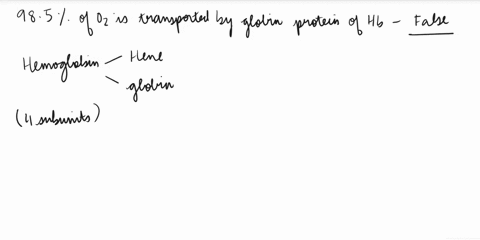 98.5% of O2 is transported by globin protein of Hb - False
Hemoglobin
Heme
globin
(4 subunits)